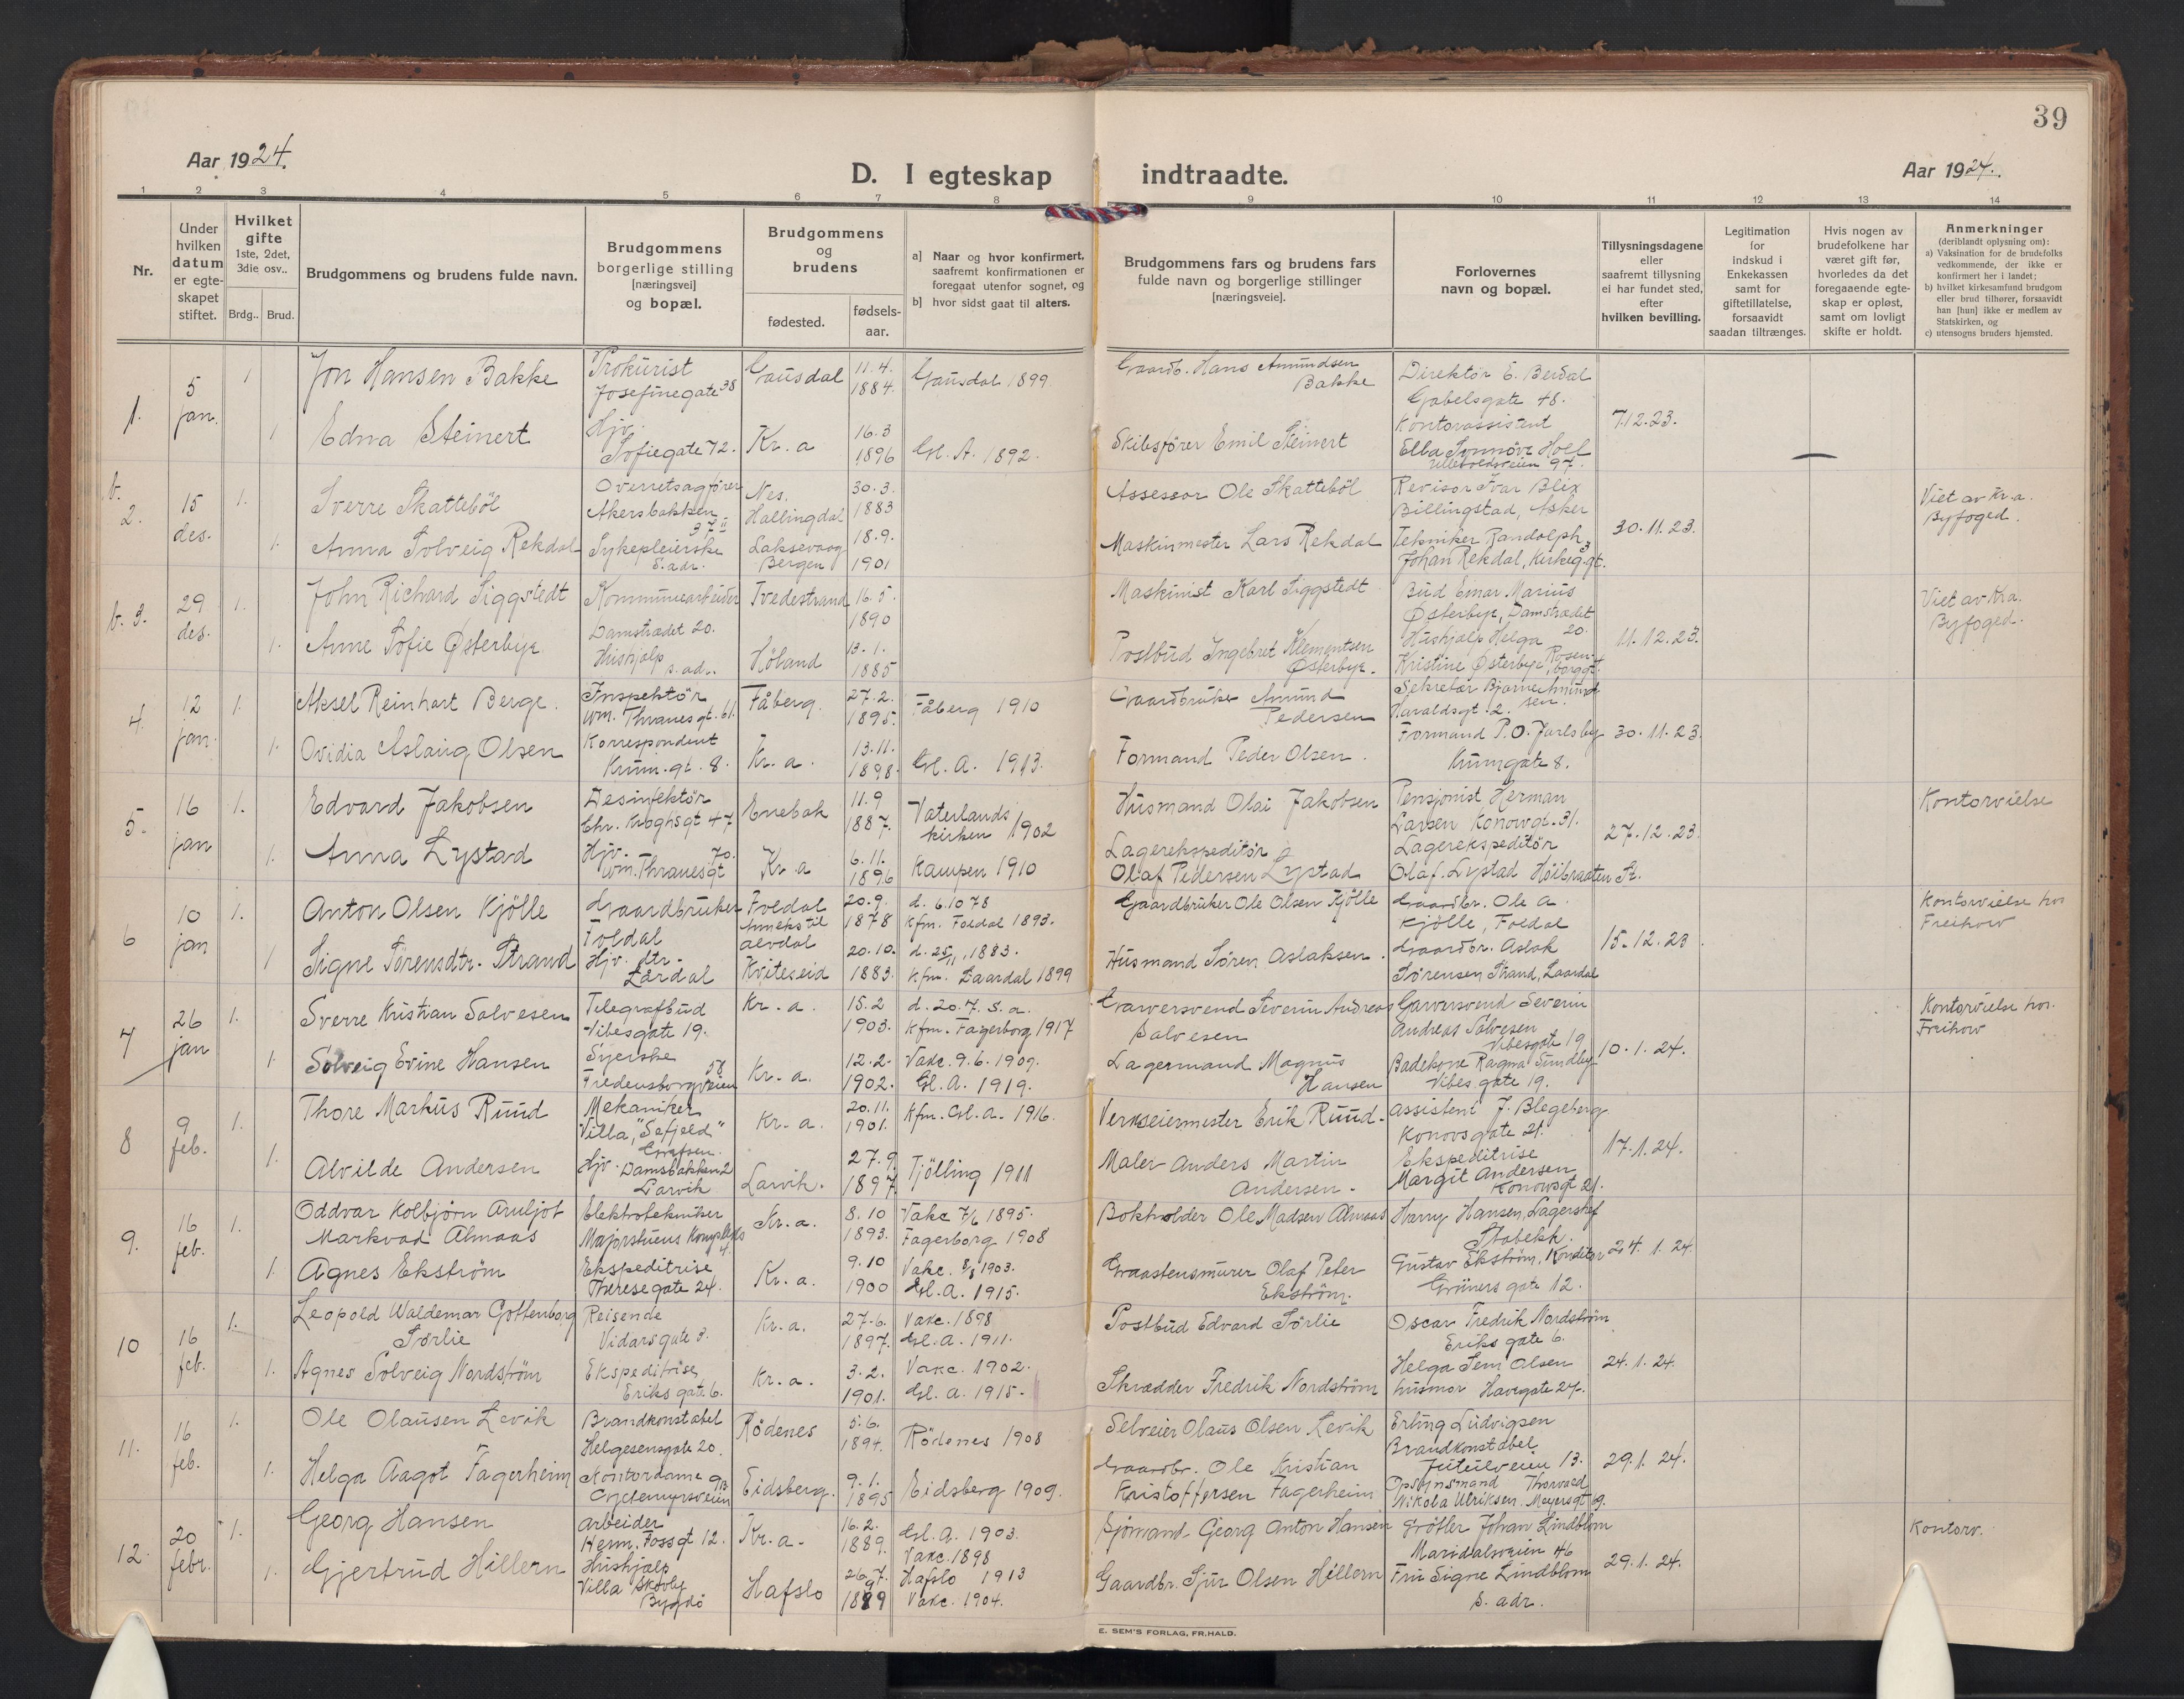 39
Aar 1924.
D. I egteskap indtraadte.
Aar 1924.
1 2 3 4 5 6 7 8 9 10 11 12 13 14
Nr.
Under hvilken datum er egte-skapet stiftet.
Hvilket gifte 1ste, 2det, 3die osv..
Brdg.. Brud.
Brudgommens og brudens fulde navn.
Brudgommens borgerlige stilling [næringsvei] og bopæl.
Brudgommens og brudens
fødested. fødsels-aar.
a] Naar og hvor konfirmert, saafremt konfirmationen er foregaat utenfor sognet, og
b] hvor sidst gaat til alters.
Brudgommens fars og brudens fars fulde navn og borgerlige stillinger [næringsveie].
Forlovernes navn og bopæl.
Tillysningsdagene eller saafremt tillysning ei har fundet sted, efter hvilken bevilling.
Legitimation for indskud i Enkekassen samt for giftetillatelse, forsaavidt saadan tiltrænges.
Hvis nogen av brudefolkene har været gift før, hvorledes da det foregaaende egte-skap er opløst, samt om lovligt skifte er holdt.
Anmerkninger
(deriblandt oplysning om):
a) Vaksination for de brudefolks vedkommende, der ikke er konfirmert her i landet;
b) hvilket kirkesamfund brudgom eller brud tilhører, forsaavidt han [hun] ikke er medlem av Statskirken, og
c) utensogns bruders hjemsted.
1. 5 jan. 1
Jon Hansen Bakke
Prokurist
Josefinegate 38
Gausdal
11.4.
1884.
Gausdal 1899
Gaardb. Hans Amundsen
Bakke
Direktør E. Berdal
Gabelsgate 48.
1
Edna Steinert
Hjv.
Sofiegate 72.
Kr.a
16.3
1896
Gl. A. 1892.
Skibsfører Emil Steinert
Kontorassistent
Ella Synnøve Hoel
Ullevoldsveien 97.
7.12.23.
—
b. 2. 15 des. 1.
Sverre Skatteböl
Overretsagfører
Akersbakken
37 II
Nes.
Hallingdal
30.3.
1883
Assessor Ole Skatteböl
Revisor Ivar Blix
Billingstad, Asker
Viet av Kr.a.
Byfoged.
1.
Anna Solveig Rekdal
Sykepleierske
S. adr.
Laksevaag
Bergen
18.9.
1901
Maskinmester Lars Rekdal
Tekniker Randolph
Johan Rekdal, Kirkeg.gt. 3
30.11.23.
b. 3. 29 des. 1.
John Richard Siggstedt
Kommunearbeider
Damstrædet 20.
Tvedestrand
16.5.
1890
Maskinist Karl Siggstedt
Bud Einar Marius
Østerbye, Damstrædet
20.
Viet av Kra.
Byfoged.
1.
Anne Sofie Østerbye
Hushjalp
s. ad..
Höland
13.1.
1885
Postbud Ingebret Klementsen
Østerbye.
Hushjalp Helga
Kristine Østerbye, Rosen-
borggt.
11.12.23.
4. 12 jan. 1.
Aksel Reinhart Berge.
Inspektör
Wm. Thranesgt. 61.
Fåberg.
27.2.
1895.
Fåberg 1910
Gaardbruker Amund
Pedersen
Sekretær Bjarne Amund-
sen.
Haraldsgt. 2.
1.
Ovidia Aslaug Olsen
Korrespondent
Krum.gt. 8.
Kr. a.
13.11.
1898.
Gl. A. 1913.
Formand Peder Olsen.
Formand P.O. Jarlsby
Krumgate 8.
30.11.23.
5. 16 jan 1.
Edvard Jakobsen
Desinfektör
Chr. Kroghsgt 47
Enebak
11.9
1887.
Vaterlands
kirken 1902
Husmand Olai Jakobsen
Pensjonist Herman
Larsen Konowgt. 31.
Kontorvielse
1.
Anna Lystad
Hjv.
Wm. Thranesgt 70.
Kr. a
6.11.
1896
Kampen 1910
Lagerekspeditör
Olaf Pedersen Lystad
Lagerekspeditör
Olaf. Lystad Höibraaten St.
27.12.23.
6 10 jan 1.
Anton Olsen Kjölle
Gaardbruker
Foldal
Foldal
Anneks til
Alvdal
20.9.
1878
d. 6.10 78
Kfm. Foldal 1893.
Gaardbruker Ole Olsen Kjölle
Gaardbr. Ole A.
Kjölle, Foldal
Kontorvielse hos
Freihow
1
Signe Sørensdtr. Strand
Hjv. dtr.
Lårdal
Kviteseid
20.10.
1883.
d. 25/11 1883.
Kfm. Laardal 1899
Husmand Søren Aslaksen.
Gaardbr. Aslak
Sørensen Strand, Laardal
15.12.23
7 26 jan 1.
Sverre Kristian Salvesen
Telegrafbud
Vibesgate 19.
Kr. a.
15.2
1903.
d. 20.7. s. a.
Kfm. Fagerborg 1917
Garversvend Severin Andreas
Salvesen
Garversvend Severin
Andreas Salvesen
Vibesgate 19
Kontorvielse hos.
Freihow
1.
Solveig Evine Hansen
Syerske
Fredensborgveien 58
Kr. a.
12.2.
1902.
Vakc. 9.6.1909.
Gl. A. 1919.
Lagermand Magnus
Hansen
Badekone Ragna Sundby
Vibes gate 19.
10.1.24.
8 9 feb. 1.
Thore Markus Ruud
Mekaniker
Villa, "Sefjeld"
Grefsen.
Kr. a.
20.11.
1901.
Kfm. Gl. A. 1916.
Verkseiermester Erik Ruud.
Assistent J. Blegeberg
Konovsgate 21.
1.
Alvilde Andersen
Hjv. Damsbakken 2
Larvik
Larvik.
27.9
1897
Tjölling 1911
Maler Anders Martin
Andersen.
Ekspeditrise
Margit Andersen
Konowsgt 21.
17.1.24.
9. 16 feb. 1.
Oddvar Kolbjørn Arnljot
Markvad Almaas
Elektrotekniker
Majorstuens Kompleks
Kr. a.
8.10
1893.
Vakc 7/6 1895.
Fagerborg 1908
Bokholder Ole Madsen Almaas
Harry Hansen, Lagerchef
Stabekk.
1.
Agnes Ekström
Ekspeditrise
Theresegate 24.
Kr. a.
9.10
1900
Vakc. 8/8 1903.
Gl. A. 1915.
Graastensmurer Olaf Peter
Ekström.
Gustav Ekström, Konditor
Grüners gate 12.
24.1.24.
10 16 feb. 1.
Leopold Waldemar Gottenborg
Sørlie
Reisende
Vidarsgate 3.
Kr. a.
27.6.
1897.
Vakc. 1898
Gl. A. 1911.
Postbud Edvard Sørlie
Oscar Fredrik Nordström
Eriks gate 6.
1.
Agnes Solveig Nordström
Ekspeditrise,
Eriks gate 6.
Kr. a.
3.2.
1901.
Vakc. 1902.
Gl. A. 1915.
Skrædder Fredrik Nordström
Helga Sem Olsen
husmor Havegate 24.
24.1.24.
11. 16 feb. 1.
Ole Olausen Levik
Brandkonstabel
Helgesensgate 20.
Rödenes
5.6.
1894.
Rödenes 1908
Selveier Olaus Olsen Levik
Erling Ludvigsen
Brandkonstabel.
Juteulveien 13.
1.
Helga Aagot Fagerheim
Kontordame
Gjetemyrsveien
Eidsberg.
9.1.
1895
Eidsberg 1909.
Gaardbr. Ole Kristian
Kristoffersen Fagerheim
Opsynsmand Thorvald
Nikola Ulriksen. Meyersgt 9.
29.1.24.
12. 20 febr. 1.
Georg Hansen
Arbeider
Herm. Fossgt 12.
Kr. a.
16.2.
1889.
Gl. A. 1903.
Vakc. 1898
Sjömand Georg Anton Hansen
Grötler Johan Lindblom
Maridalsveien 46
Kontorv.
1.
Gjertrud Hillern
Hushjalp
Villa Skovly
Bygdö
Hafslo
26.7.
1889
Hafslo 1913
Vakc. 1904.
Gaardbr. Sjur Olsen Hillern
Fru Signe Lindblom
S. adr.
29.1.24.
E. SEM'S FORLAG, FR.HALD.